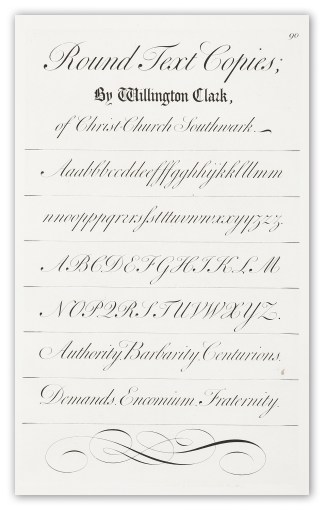 90
Round Text Copies;
By Willington Clark,
of Christ Church Southwark.
Aaabbbccddeefffgghhijkkllmm
nnoopppqrzrsſsttttuvwnwxxyyzzz.
ABCDEFGHIKLM
NOPQRSTUVWXYZ.
Authority, Barbarity, Centurions.
Demands, Encomium, Fraternity.